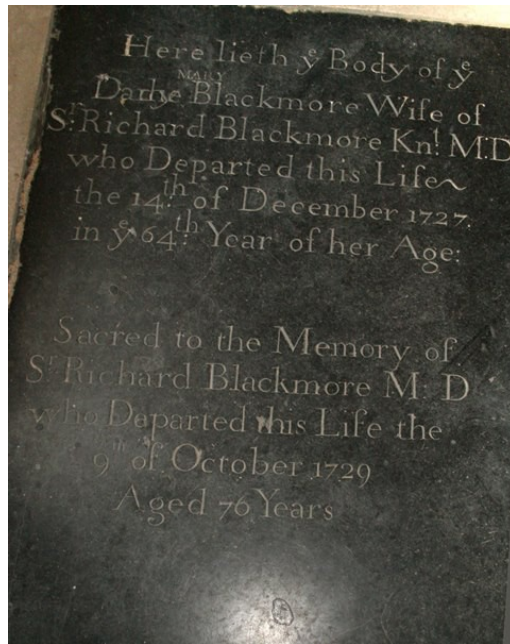 Here lieth yͤ Body of yͤ
MARY
Dame Blackmore Wife of
Sʳ: Richard Blackmore Knᵗ. M:D
who Departed this Life~
the 14:ᵗʰ of December 1727.
in yͤ 64:ᵗʰ Year of her Age:
Sacred to the Memory of
Sʳ Richard Blackmore M: D
who Daparted this Life the
9ᵗʰ of October 1729
Aged 76 Years